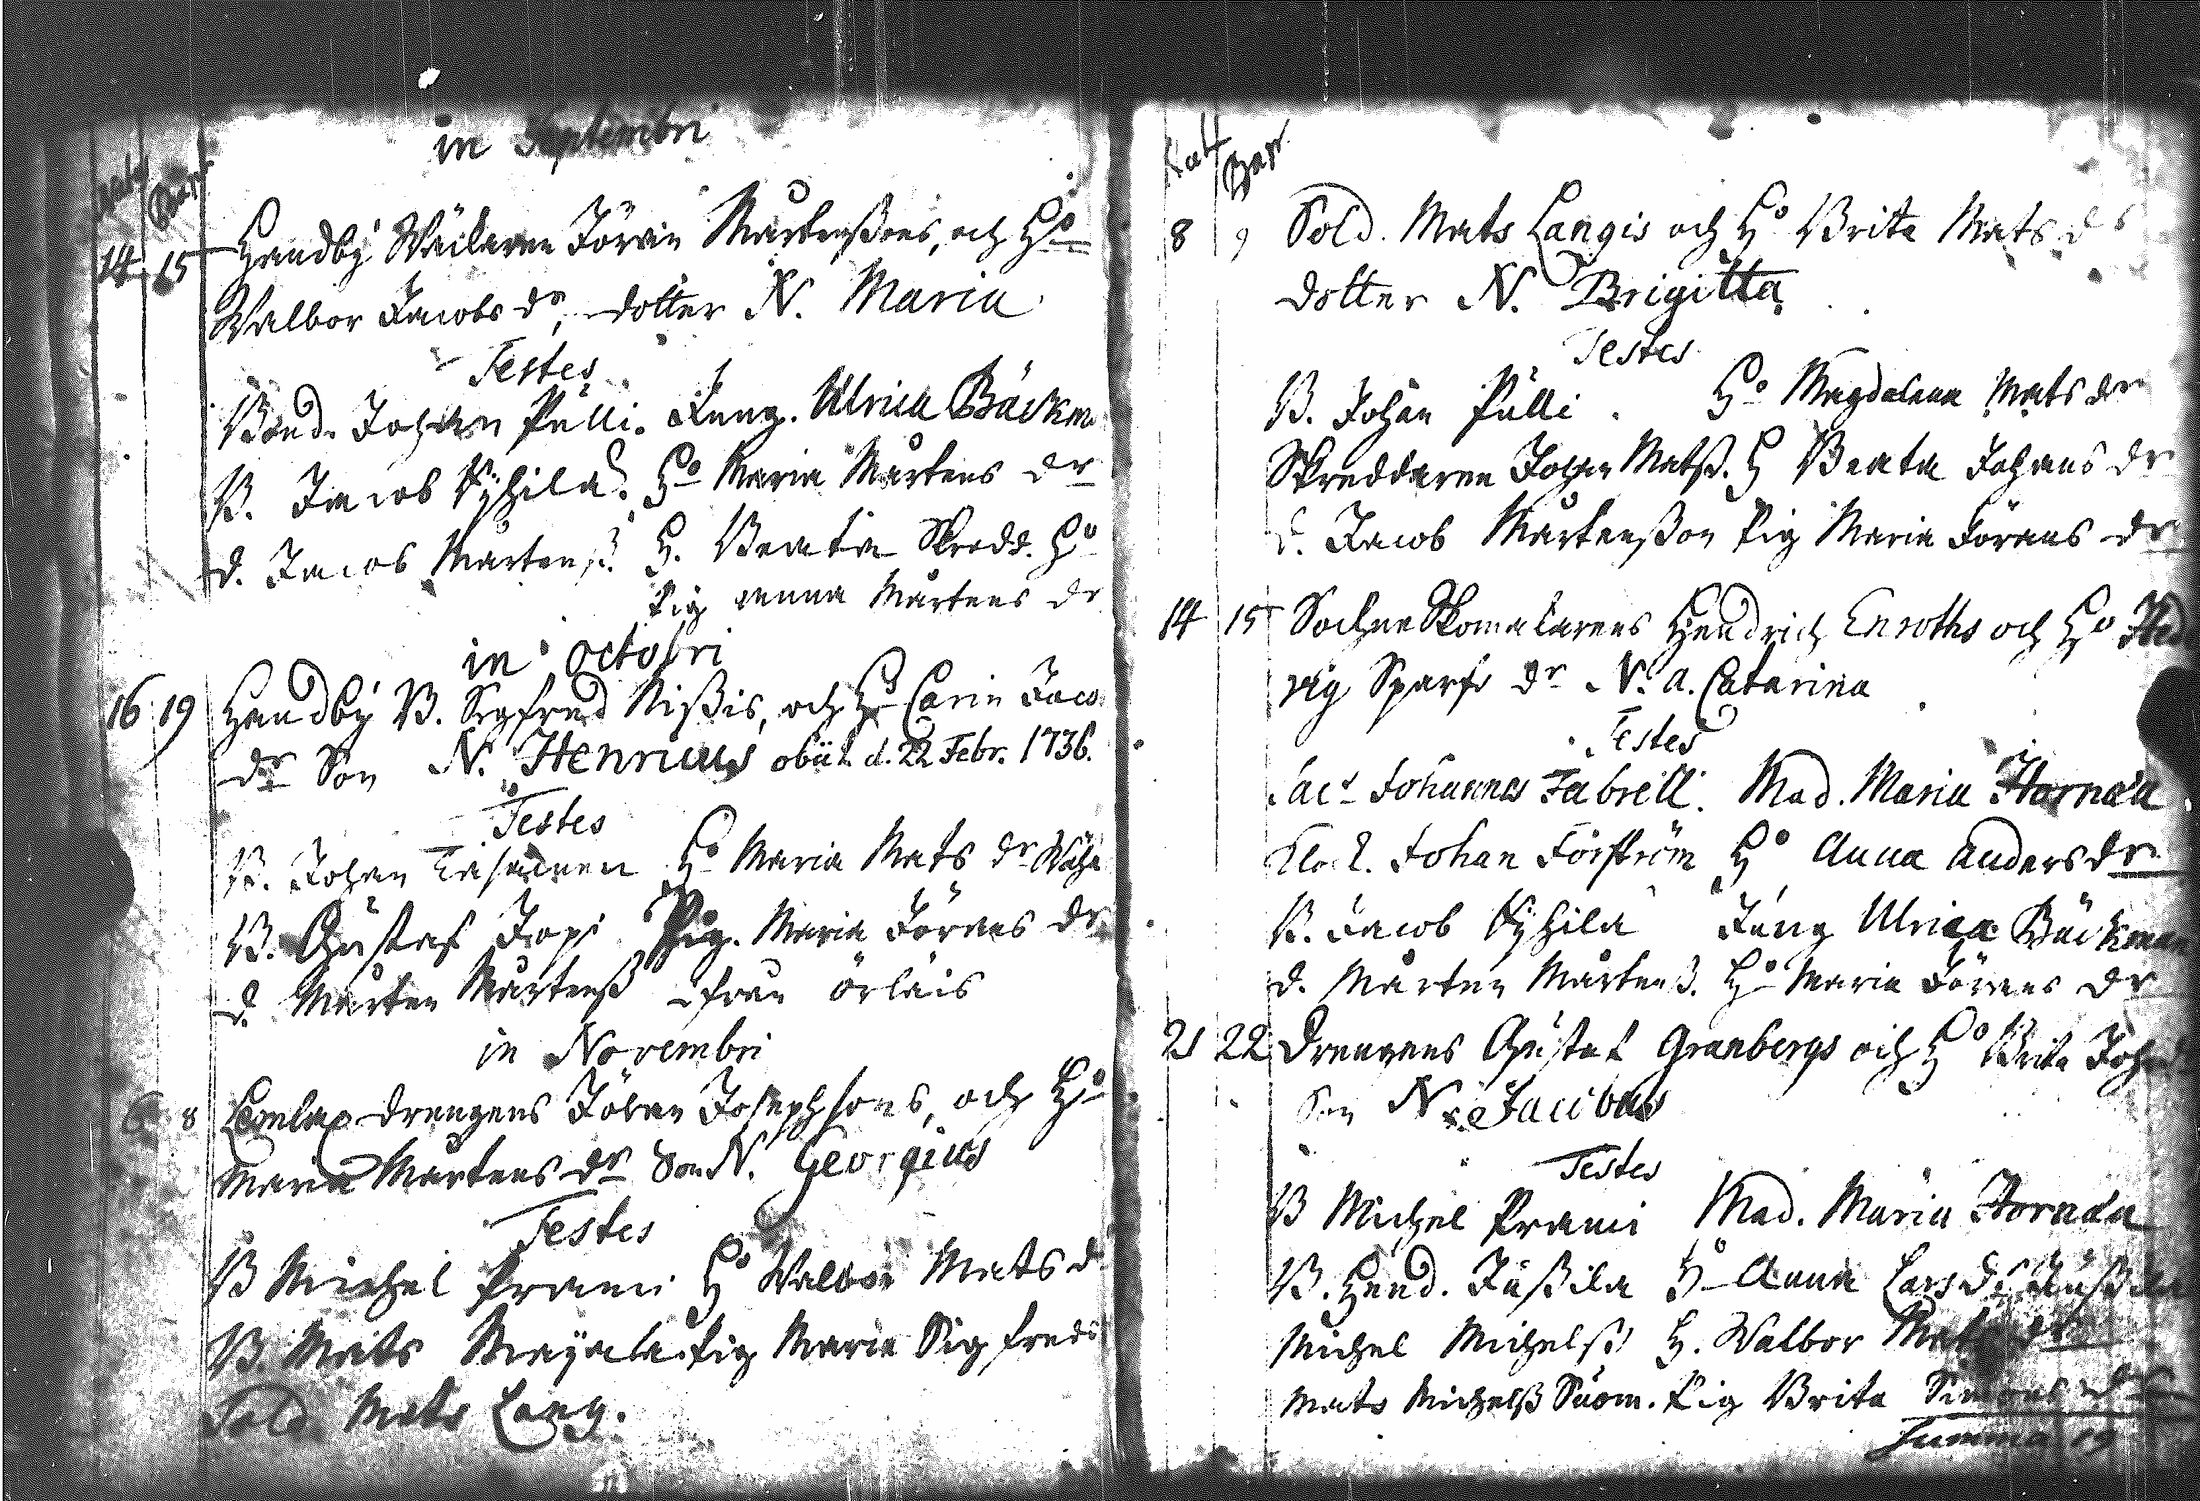 in Septembri
Nat Bapt
14 15 Hendby Wäfaren Jöran Mårtenßons, och Ho
Walbor Jacobs dr, dotter N. Maria
Testes
Bond. Johan Pulli. Jung. Ulrica Bäckm
B. Jacob Kyhila. Ho Maria Mårtens dr
d. Jacob Mårtenß. H. Beata Skredd. Ho
Pig Anna Mårtens dr
in Octobri
16 19 Hendby B. Sigfred Nißis, och Ho Carin Jacobs
dr Son N. Henricus obiit d. 22 Febr. 1736.
Testes
B. Johan Ho Maria Mats dr
B. Gustaf Jopi Pig. Maria Jörans dr
d. Mårten Mårtenß ifrån örläis
in Novembri
6 8 Lemlax drengens Jöran Josephsons, och Ho
Maria Mårtens dr Son N. Georgius
Testes
B Michel Prami Ho Walbor Mats d
B Mats Mayala Pig Maria Sigfreds
Sold Mats Lang.
Nat Bapt
8 9 Sold. Mats Langis och Ho Brita Mats d
dotter N. Brigitta
Testes
B. Johan Pulli. Ho Magdalena Mats dr
Skreddaren Johan Matsß. H Beata Johans dr
d. Jacob Mårtenßon Pig Maria Jörans dr
14 15 Sochne Skomakarens Hendrich Enroths och Ho Hed
vig Sparf dr N. A. Catarina
Testes
Sac. Johannes Fabrell. Mad. Maria Hornæa
Klock. Johan Forström Ho Anna Anders dr
B. Jacob Kyhila Jung Ulrica Bäckman
d. Mårten Mårtenß. Ho Maria Jörans dr
21 22 Drengens Gustaf Granbergs och Ho Brita Joh
Son N. Jacobus
Testes
B Michel Prami Mad. Maria Hornæa
B. Hend. Jußila H Anna Lars dr Jußila
Michel Michelsß H. Walbor Mats dr
Mats Michelsß Suom. Pig Brita Simons dr
Summa 19